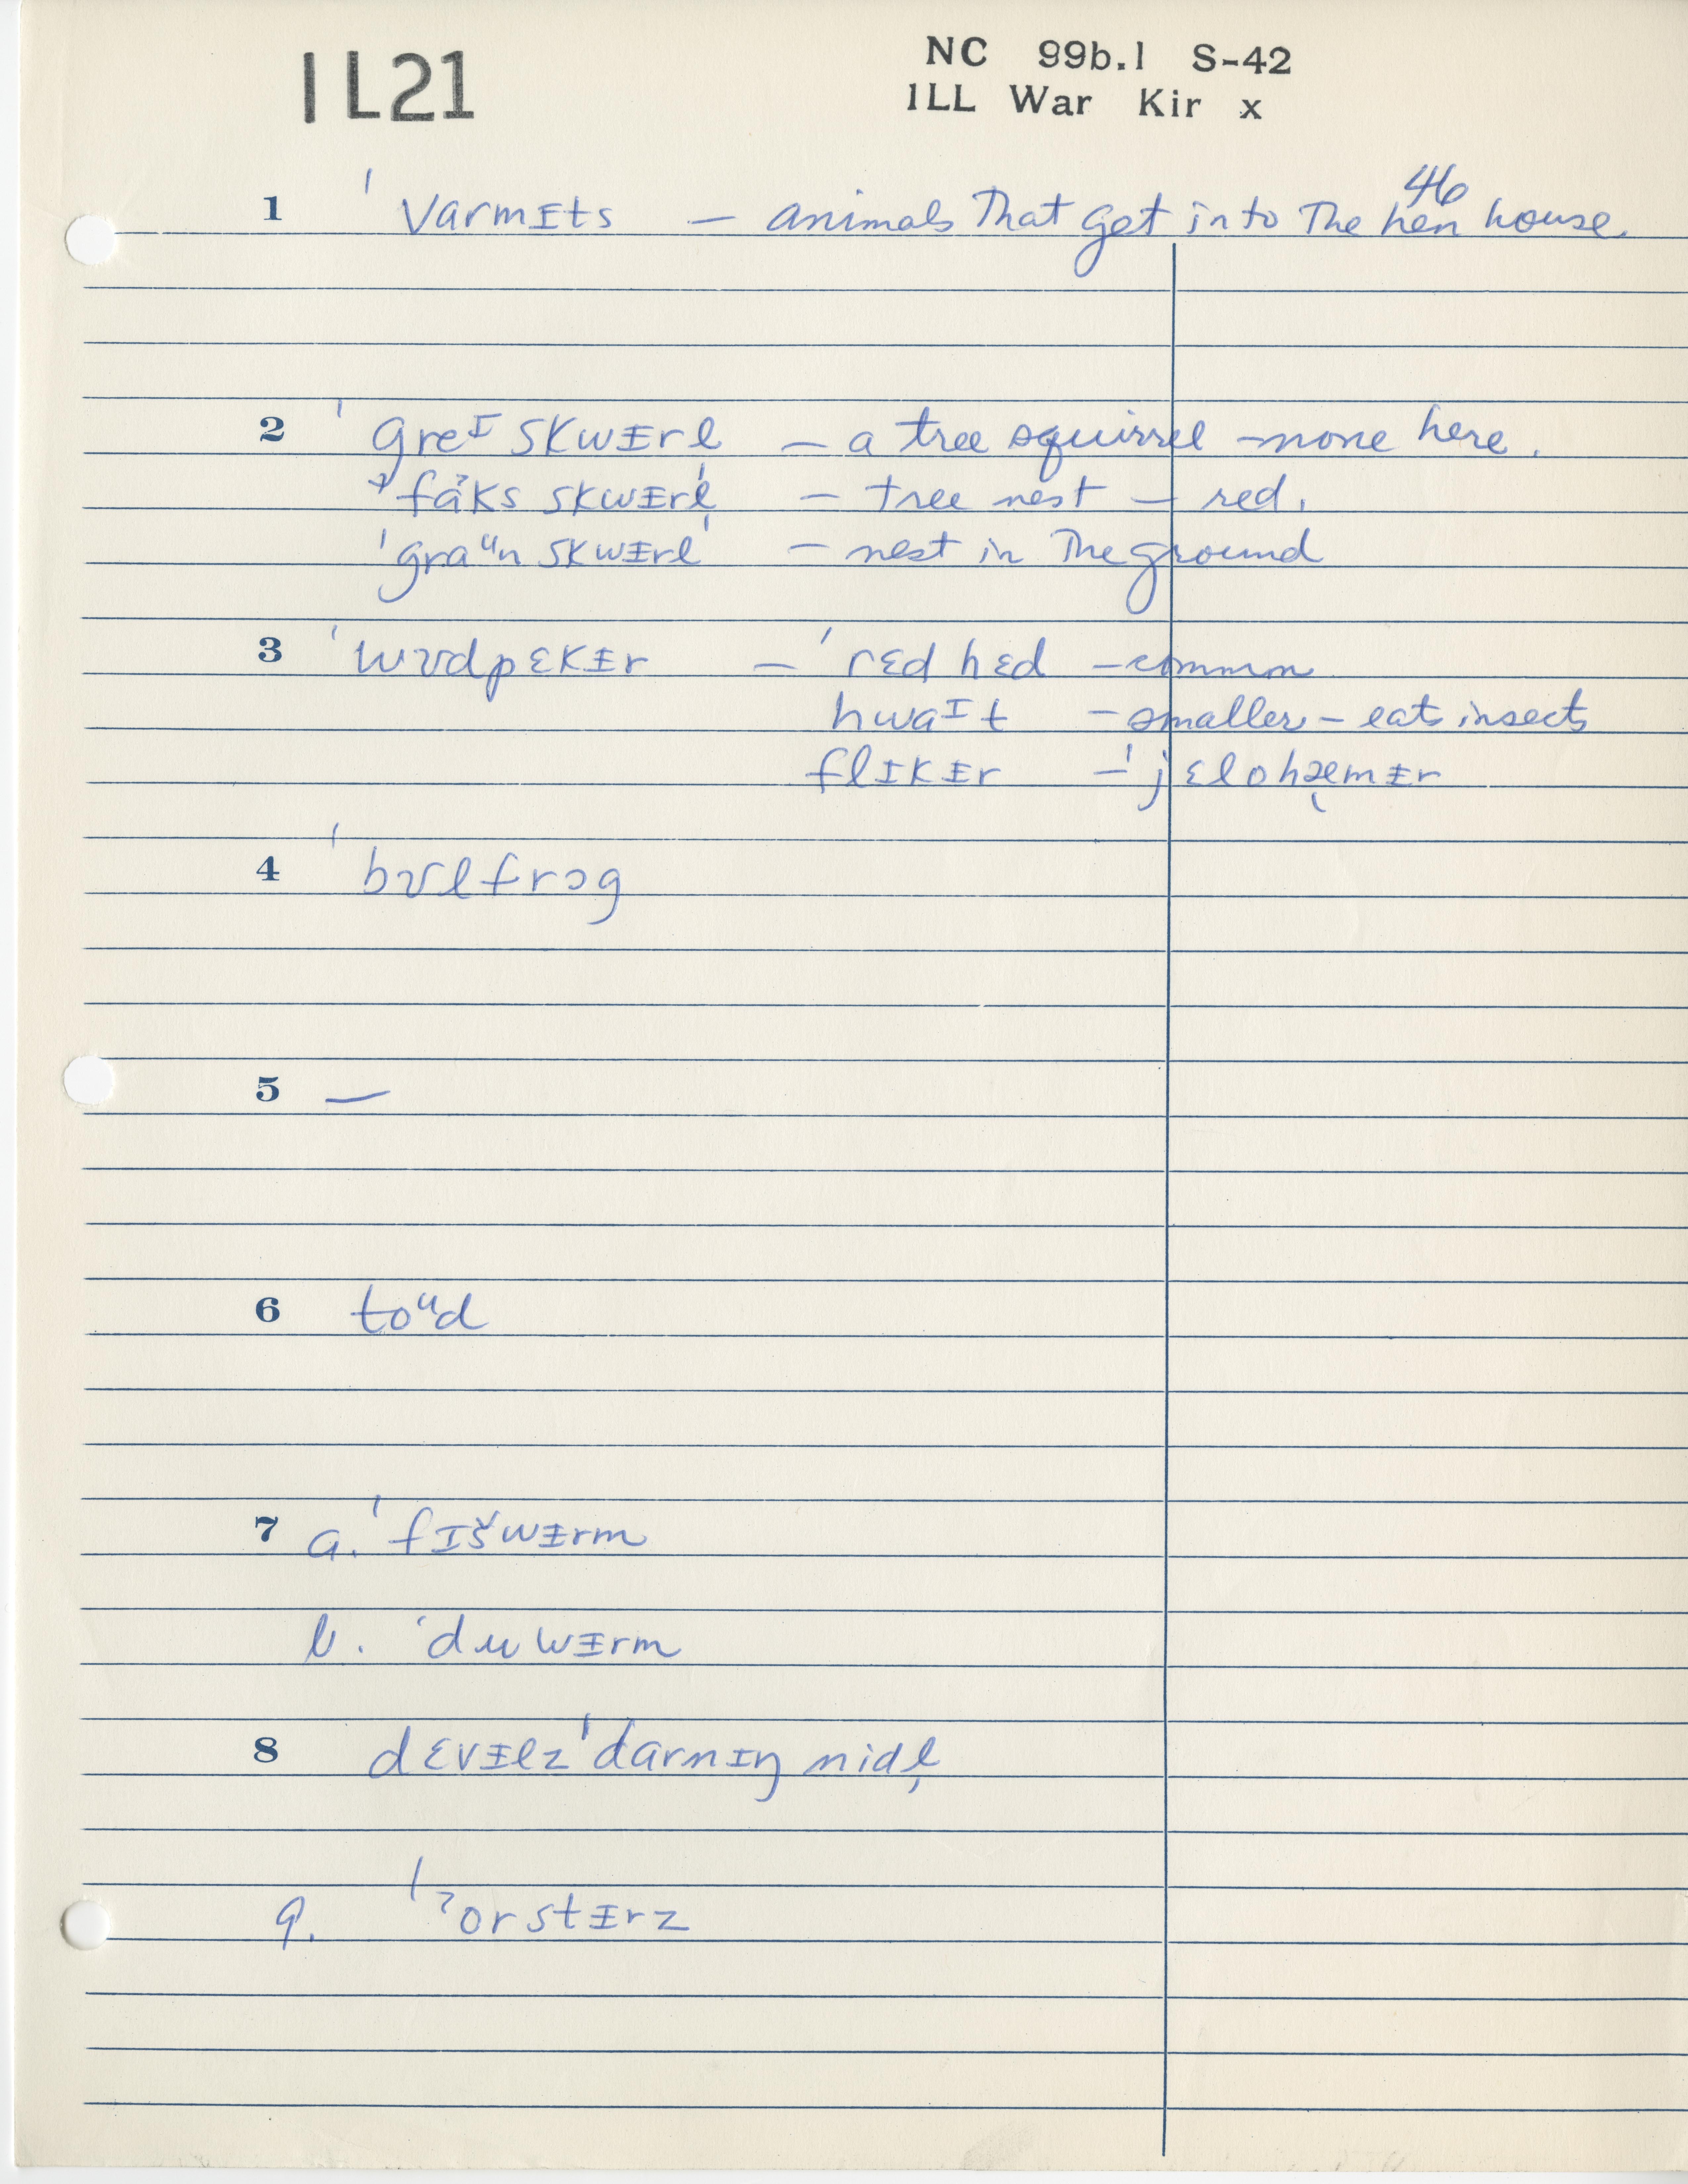 IL21
NC 99b.1 S-42
ILL War Kir x
46
1 ˈvarmɪ̵ts — animals That get into The hen house.
2 ˈgreᴵ skwɪ̵rl — a tree squirrel — none here.
ˈfaks skwɪ̵rl̩ — tree nest — red.
ˈgraᵘn skwɪ̵rl — nest in The ground
3 ˈwʊdpɛkɪ̵r — ˈrɛd hɛd — common
hwaᴵt — smaller — eats insects
flɪkɪ̵r — ˈjɛlohæmɪ̵r
4 ˈbʊlfrɔg
5 —
6 toᵘd
7 a. ˈfɪšwɪ̵rm
b. ˈduwɪ̵rm
8 dɛvɪ̵lz ˈdarnɪŋ nidl̩
9. ˈɔrstɪ̵rz